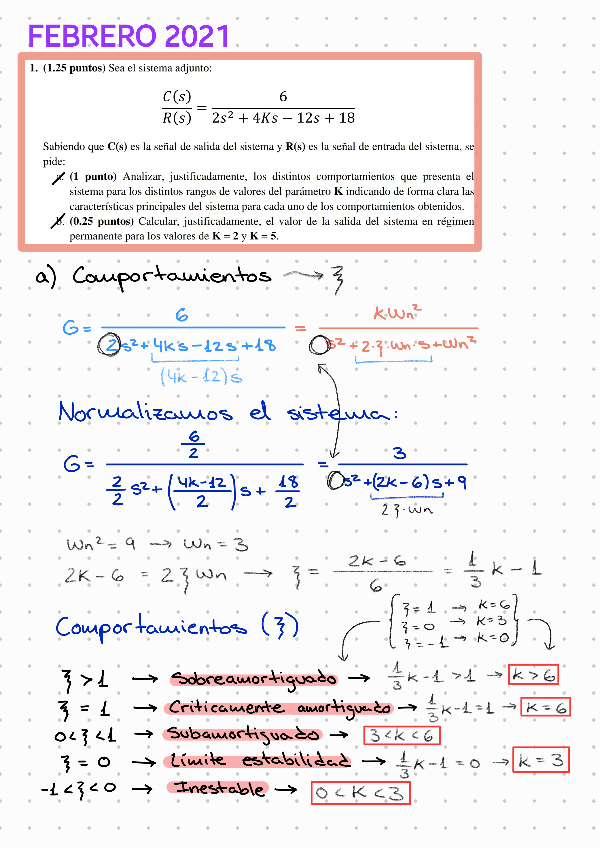 FEBRERO 2021
1. (1.25 puntos) Sea el sistema adjunto:
C(s)/R(s) = 6/(2s² + 4Ks − 12s + 18)
Sabiendo que C(s) es la señal de salida del sistema y R(s) es la señal de entrada del sistema, se
pide:
a. (1 punto) Analizar, justificadamente, los distintos comportamientos que presenta el
sistema para los distintos rangos de valores del parámetro K indicando de forma clara las
características principales del sistema para cada uno de los comportamientos obtenidos.
b. (0.25 puntos) Calcular, justificadamente, el valor de la salida del sistema en régimen
permanente para los valores de K = 2 y K = 5.
a) Comportamientos → ξ
G = 6/(2s² + 4ks − 12s + 18) = k·Wn²/(s² + 2·ξ·wn·s + wn²)
(4k − 12)s
Normalizamos el sistema:
G = (6/2)/(2/2 s² + ((4k − 12)/2)s + 18/2) = 3/(s² + (2k − 6)s + 9)
2ξ·wn
Wn² = 9 → Wn = 3
2K − 6 = 2ξWn → ξ = (2k − 6)/6 = 1/3 k − 1
ξ = 1 → k = 6
ξ = 0 → k = 3
ξ = −1 → k = 0
Comportamientos (ξ)
ξ > 1 → Sobreamortiguado → 1/3 k − 1 > 1 → k > 6
ξ = 1 → Criticamente amortiguado → 1/3 k − 1 = 1 → k = 6
0 < ξ < 1 → Subamortiguado → 3 < k < 6
ξ = 0 → Límite estabilidad → 1/3 k − 1 = 0 → k = 3
−1 < ξ < 0 → Inestable → 0 < K < 3